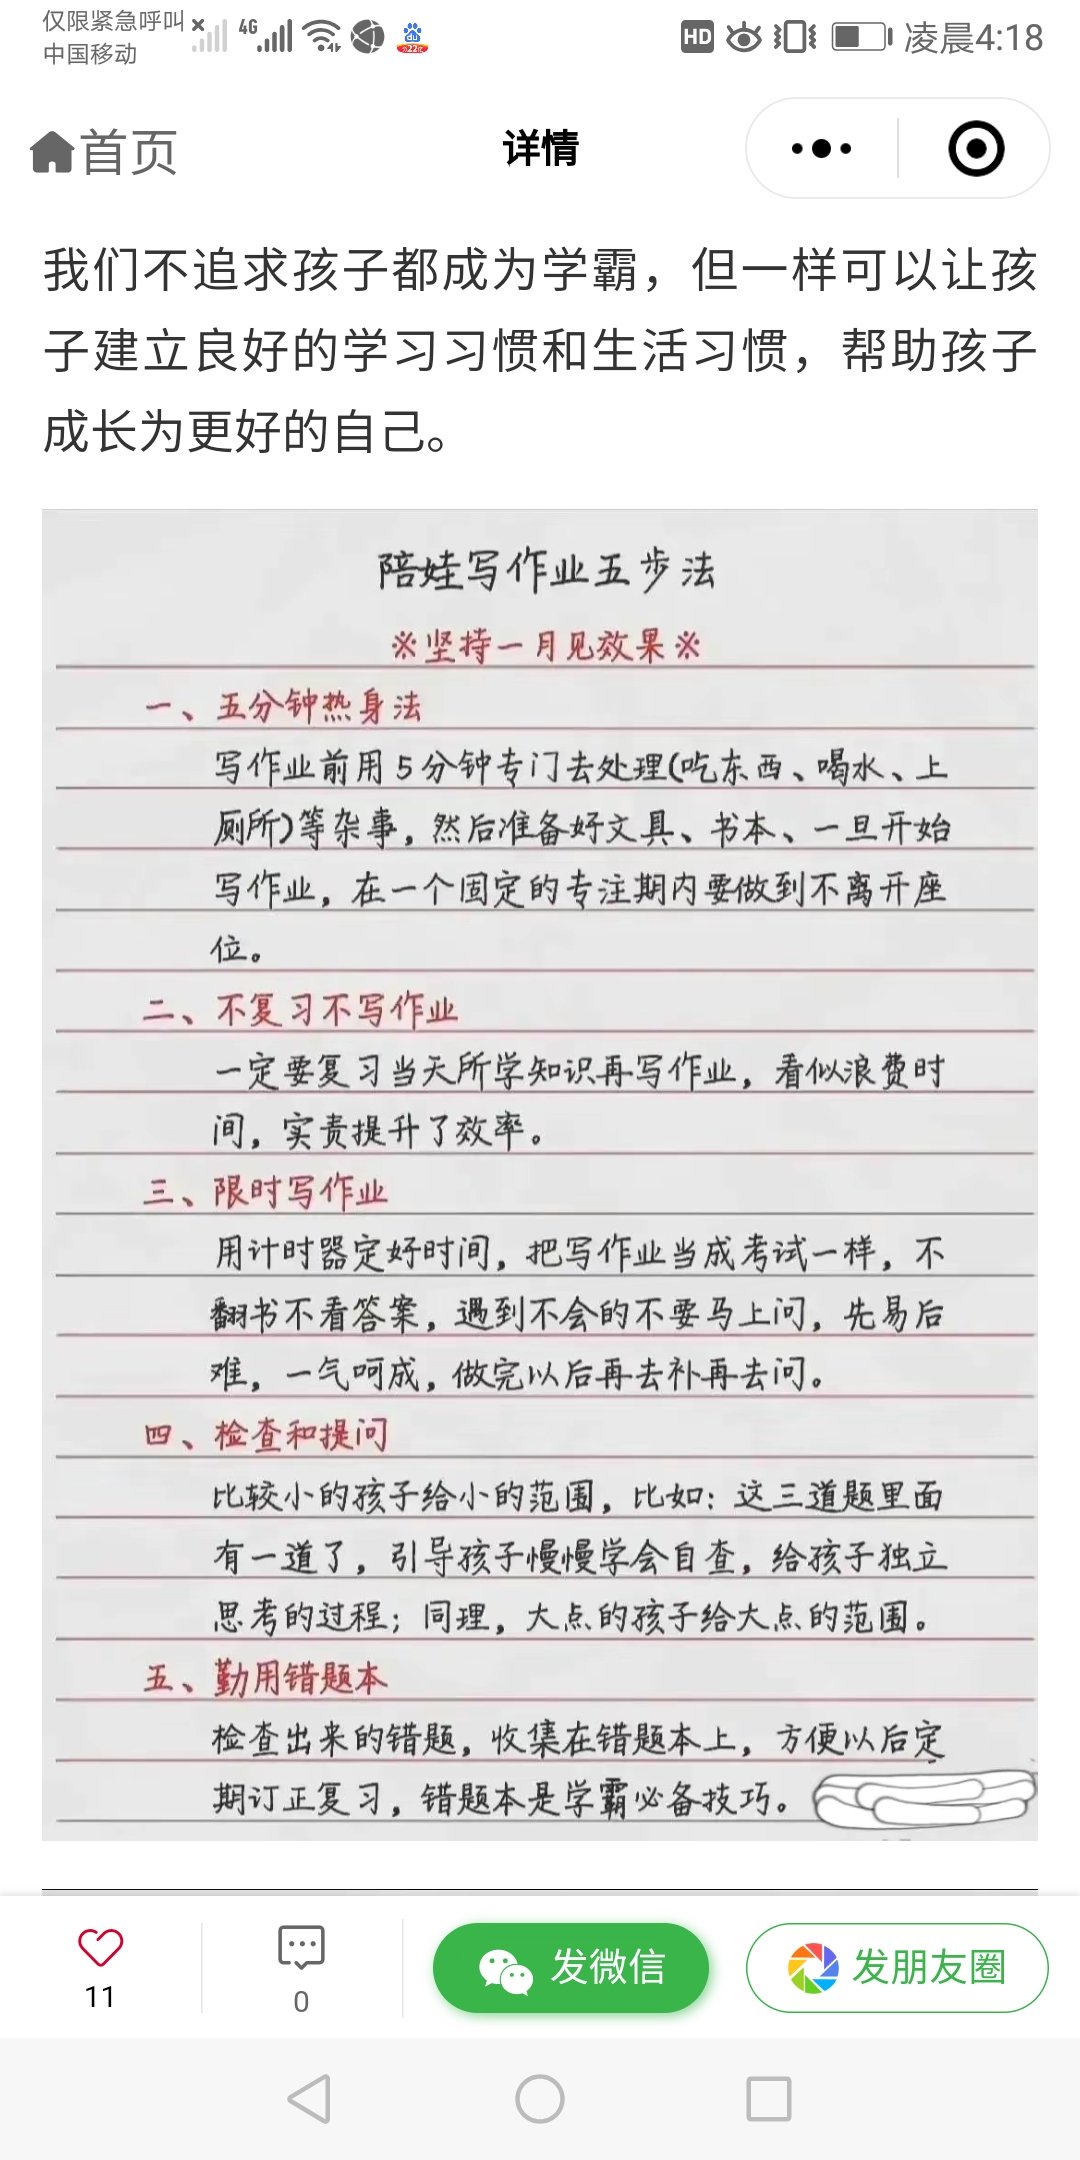 仅限紧急呼叫
中国移动
4G
HD
凌晨4:18
首页
详情
我们不追求孩子都成为学霸，但一样可以让孩
子建立良好的学习习惯和生活习惯，帮助孩子
成长为更好的自己。
陪娃写作业五步法
※坚持一月见效果※
一、五分钟热身法
写作业前用5分钟专门去处理(吃东西、喝水、上
厕所)等杂事，然后准备好文具、书本、一旦开始
写作业，在一个固定的专注期内要做到不离开座
位。
二、不复习不写作业
一定要复习当天所学知识再写作业，看似浪费时
间，实责提升了效率。
三、限时写作业
用计时器定好时间，把写作业当成考试一样，不
翻书不看答案，遇到不会的不要马上问，先易后
难，一气呵成，做完以后再去补再去问。
四、检查和提问
比较小的孩子给小的范围，比如：这三道题里面
有一道了，引导孩子慢慢学会自查，给孩子独立
思考的过程；同理，大点的孩子给大点的范围。
五、勤用错题本
检查出来的错题，收集在错题本上，方便以后定
期订正复习，错题本是学霸必备技巧。
11
0
发微信
发朋友圈